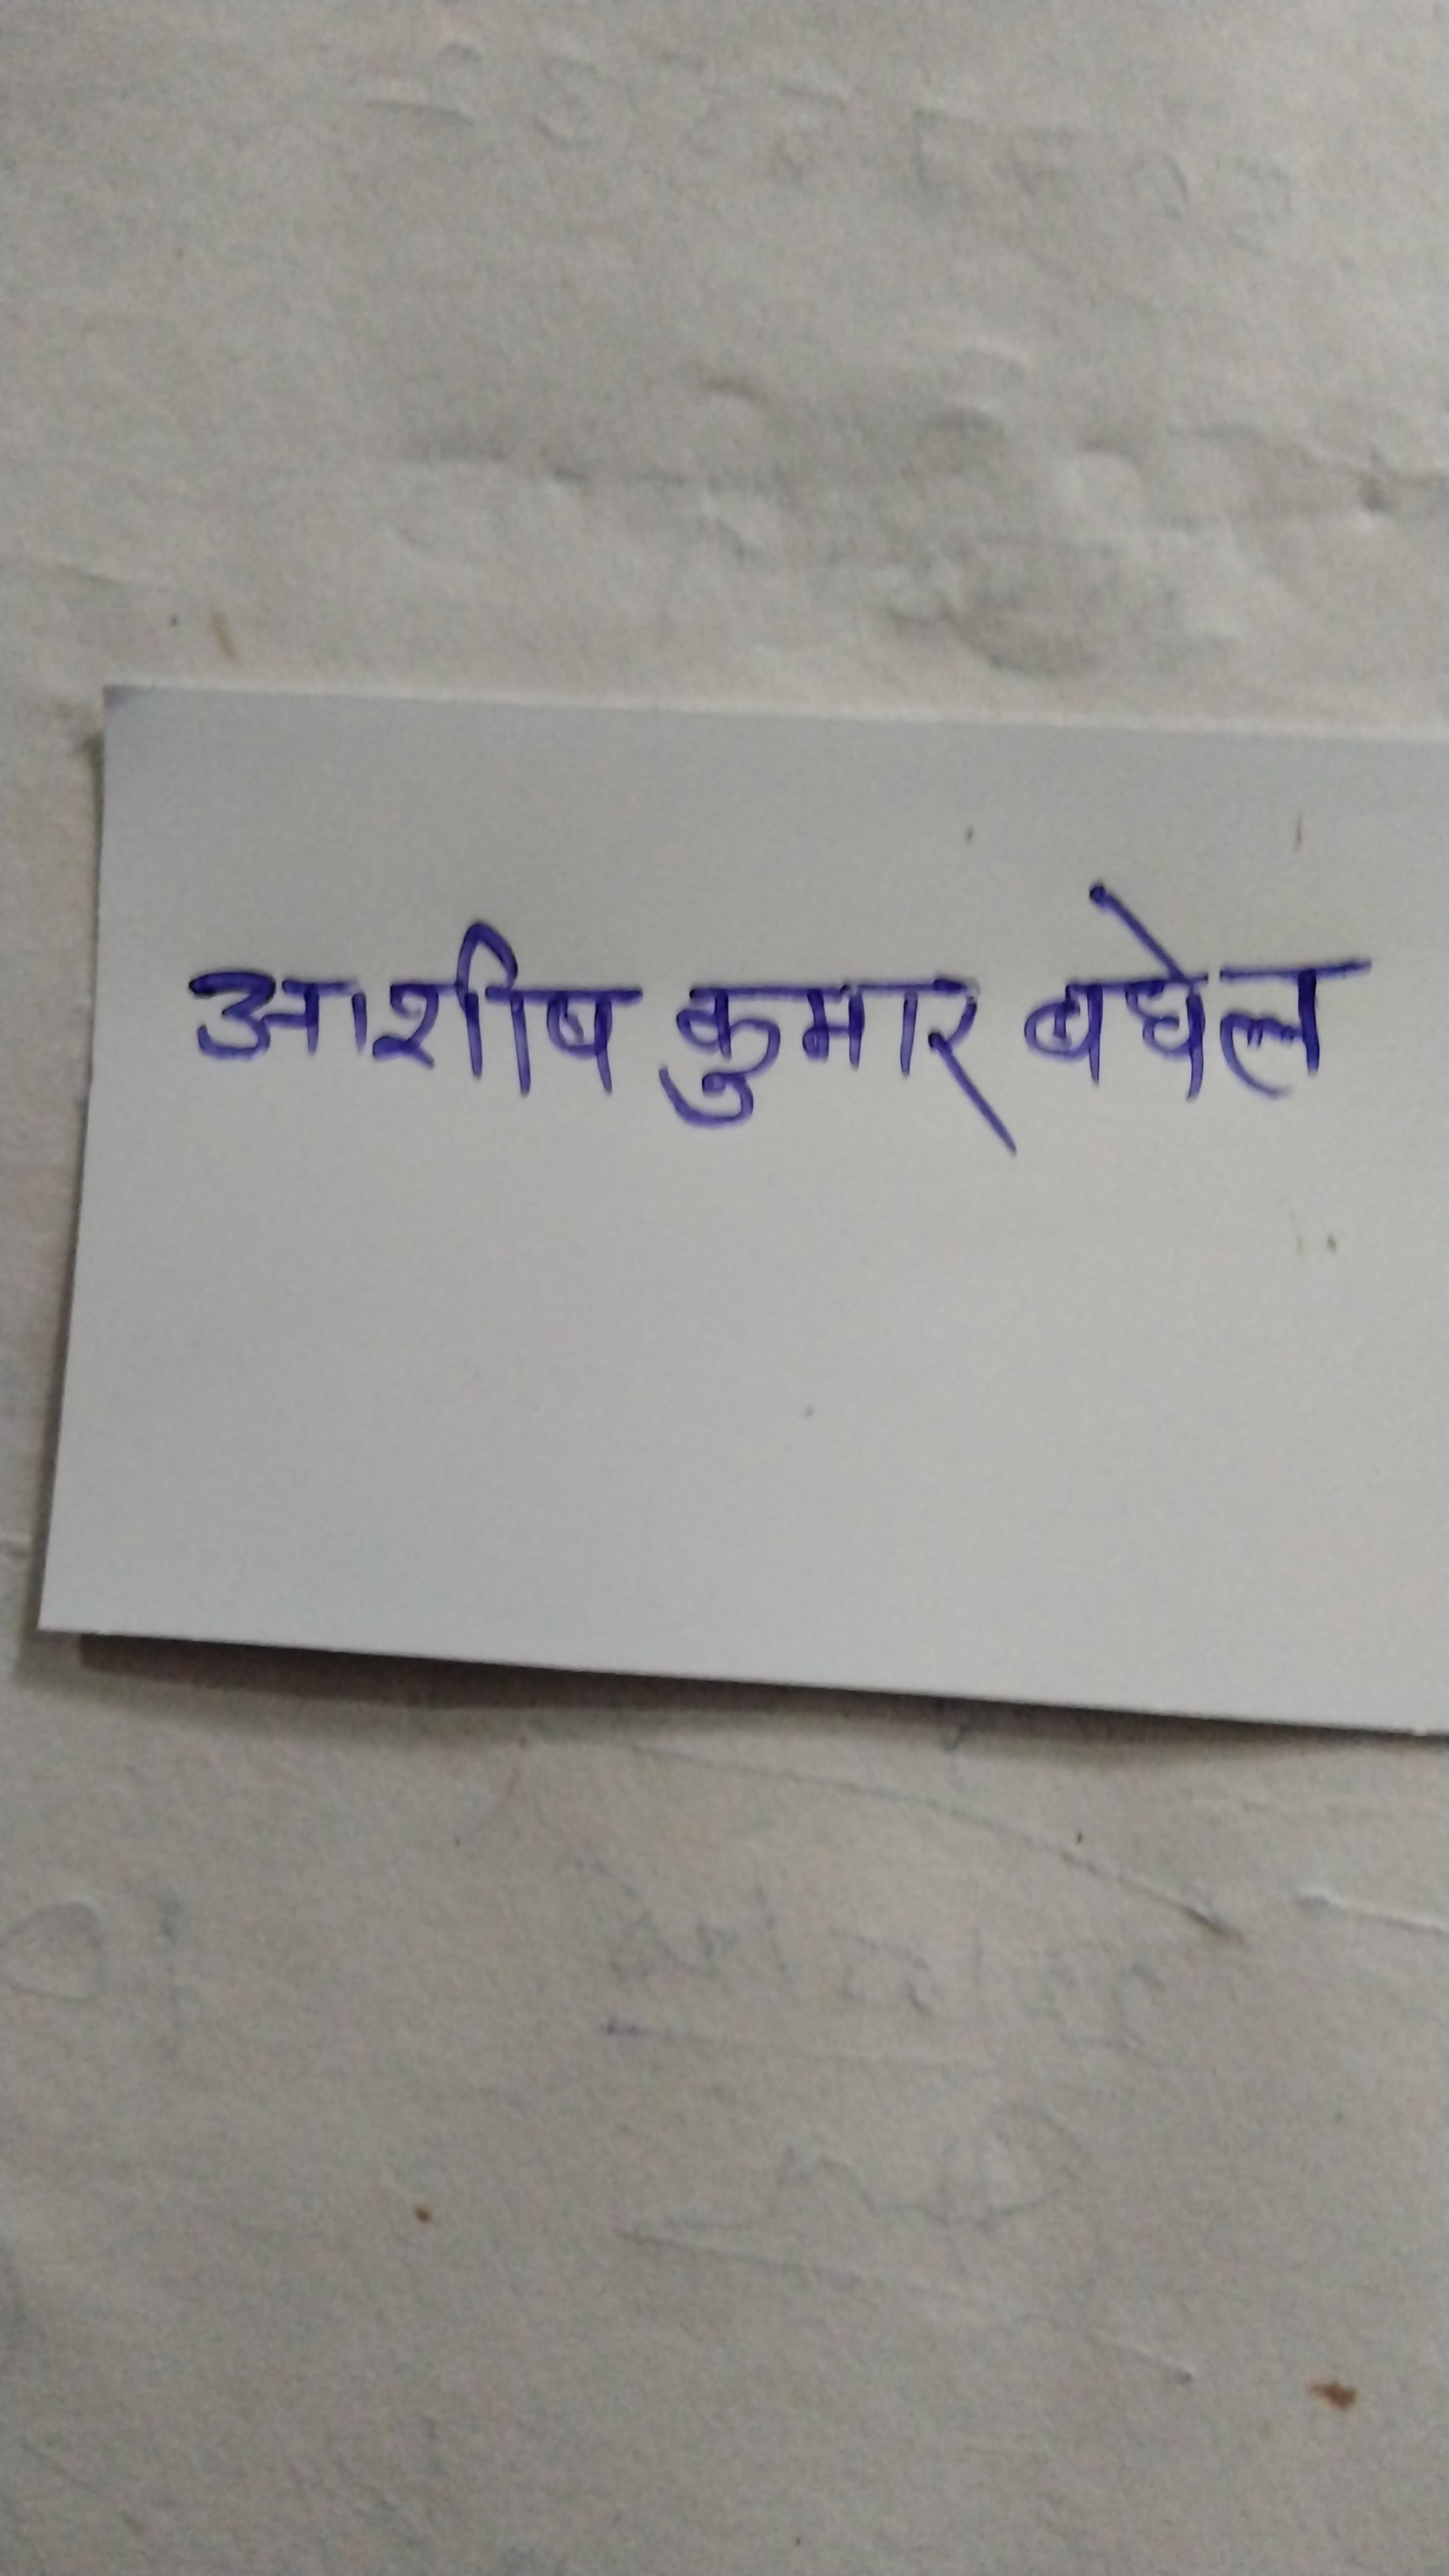 आशीष कुमार बघेल